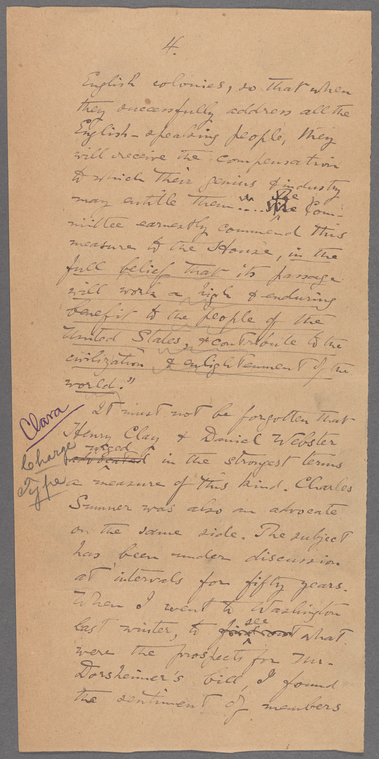 4.
English colonies, so that when
they successfully address all the
English-speaking people, they
will receive the compensation
to which their genius & industry
may entitle them.... The Com-
mittee earnestly commend this
measure to the House, in the
full belief that its passage
will work a high & enduring
benefit to the people of the
United States, & contribute to the
civilization & enlightenment of the
world."
Clara
Change
Type
It must not be forgotten that
Henry Clay & Daniel Webster
urged in the strongest terms
a measure of this kind. Charles
Sumner was also an advocate
on the same side. The subject
has been under discussion
at intervals for fifty years.
When I went to Washington
last winter, to see what
were the prospects for Mr.
Dorsheimer's bill, I found
the sentiment of members